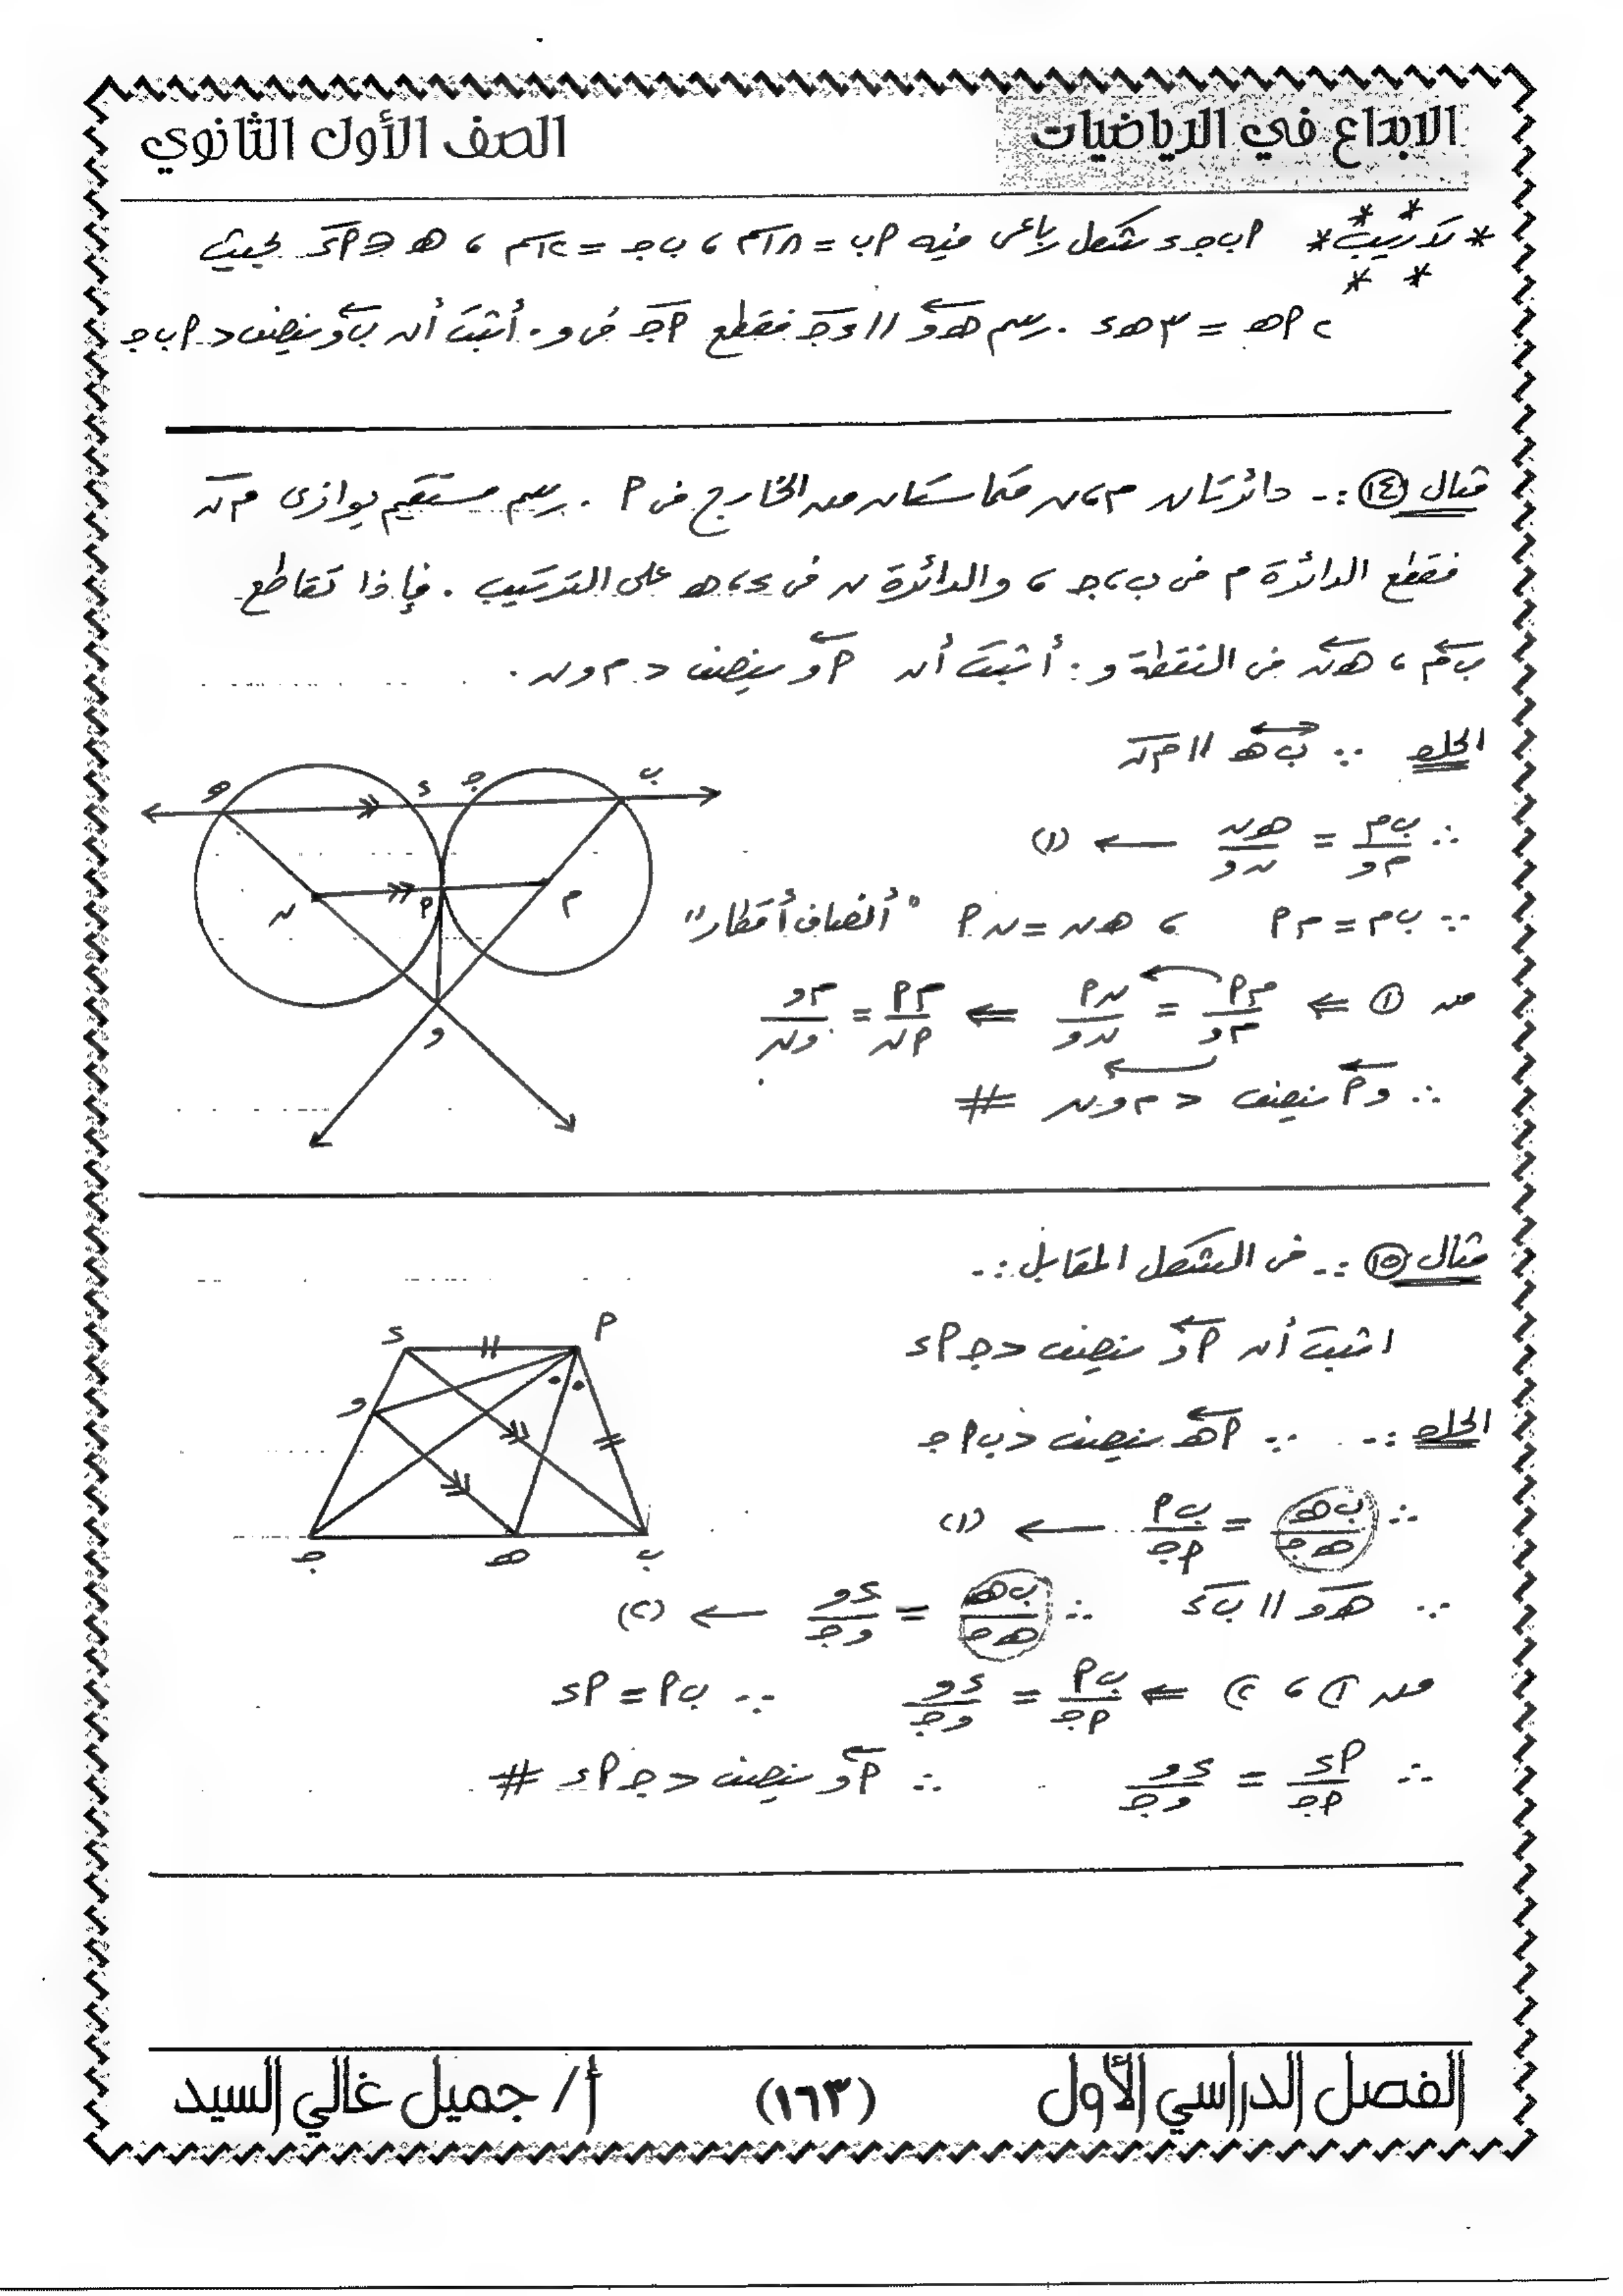 الابداع في الرياضيات
الصف الأول الثانوي
* تدريب * أ ب ج د شكل رباعى فيه أ ب = ١٨ سم ، ب ج = ١٢ سم ، هـ ∈ أ د بحيث
٢ أ هـ = ٣ هـ د . رسم هـ و // د ج فقطع أ ج فى و . أثبت أن ب و ينصف < أ ب ج
مثال (١٤) :- دائرتان م ، ن متماستان من الخارج فى أ . رسم مستقيم يوازى م ن
فقطع الدائرة م فى ب ، ج ، والدائرة ن فى د ، هـ على الترتيب . فإذا تقاطع
ب م ، هـ ن فى النقطة و . أثبت أن أ و ينصف < م و ن .
الحل ∵ ب هـ // م ن
∴ ب م / م و = هـ ن / ن و ← (١)
∵ ب م = م أ ، هـ ن = ن أ " أنصاف أقطار "
من (١) ⇐ م أ / م و = ن أ / ن و ⇐ م أ / أ ن = م و / و ن
∴ و أ ينصف < م و ن #
هـ د ج ب
ن أ م
و
مثال (١٥) :- فى الشكل المقابل :-
اثبت أن أ و ينصف < ج أ د
الحل :- ∵ أ هـ ينصف < ب أ ج
∴ ب هـ / هـ ج = ب أ / أ ج ← (١)
∵ هـ و // ب د ∴ ب هـ / هـ ج = د و / و ج ← (٢)
من ١ ، ٢ ⇐ ب أ / أ ج = د و / و ج ∵ ب أ = أ د
∴ أ د / أ ج = د و / و ج ∴ أ و ينصف < ج أ د #
د أ
و
ج هـ ب
الفصل الدراسي الأول
(١٦٣)
أ / جميل غالي السيد